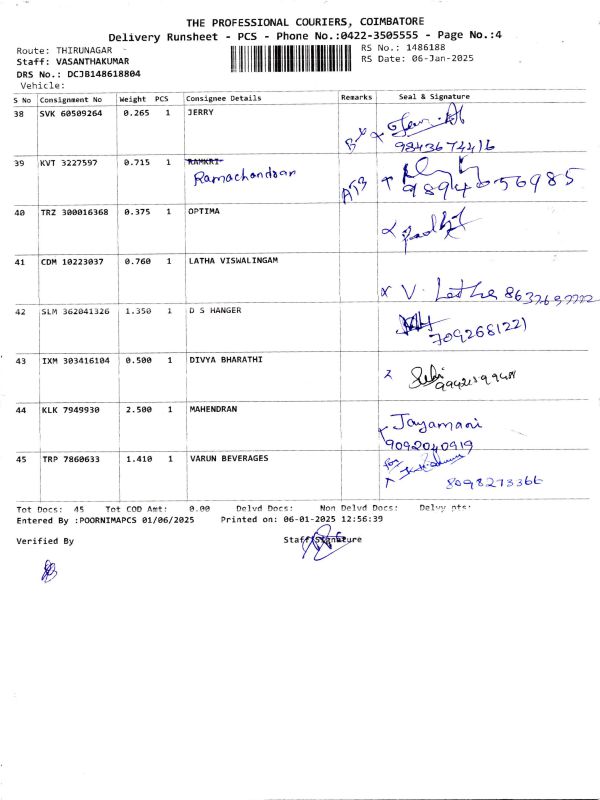 THE PROFESSIONAL COURIERS, COIMBATORE
Delivery Runsheet - PCS - Phone No.:0422-3505555 - Page No.:4
Route: THIRUNAGAR RS No.: 1486188
Staff: VASANTHAKUMAR RS Date: 06-Jan-2025
DRS No.: DCJB148618804
Vehicle:
S No Consignment No Weight PCS Consignee Details Remarks Seal & Signature
38 SVK 60509264 0.265 1 JERRY
9843674416
39 KVT 3227597 0.715 1 RAMKRI
Ramachandran
9894656985
40 TRZ 300016368 0.375 1 OPTIMA
41 CDM 10223037 0.760 1 LATHA VISWALINGAM
V. Latha
42 SLM 362041326 1.350 1 D S HANGER
7092681221
43 IXM 303416104 0.500 1 DIVYA BHARATHI
44 KLK 7949930 2.500 1 MAHENDRAN
Jayamani
9092040919
45 TRP 7860633 1.410 1 VARUN BEVERAGES
for
8098273366
Tot Docs: 45 Tot COD Amt: 0.00 Delvd Docs: Non Delvd Docs: Delvy pts:
Entered By :POORNIMAPCS 01/06/2025 Printed on: 06-01-2025 12:56:39
Verified By Staff Signature